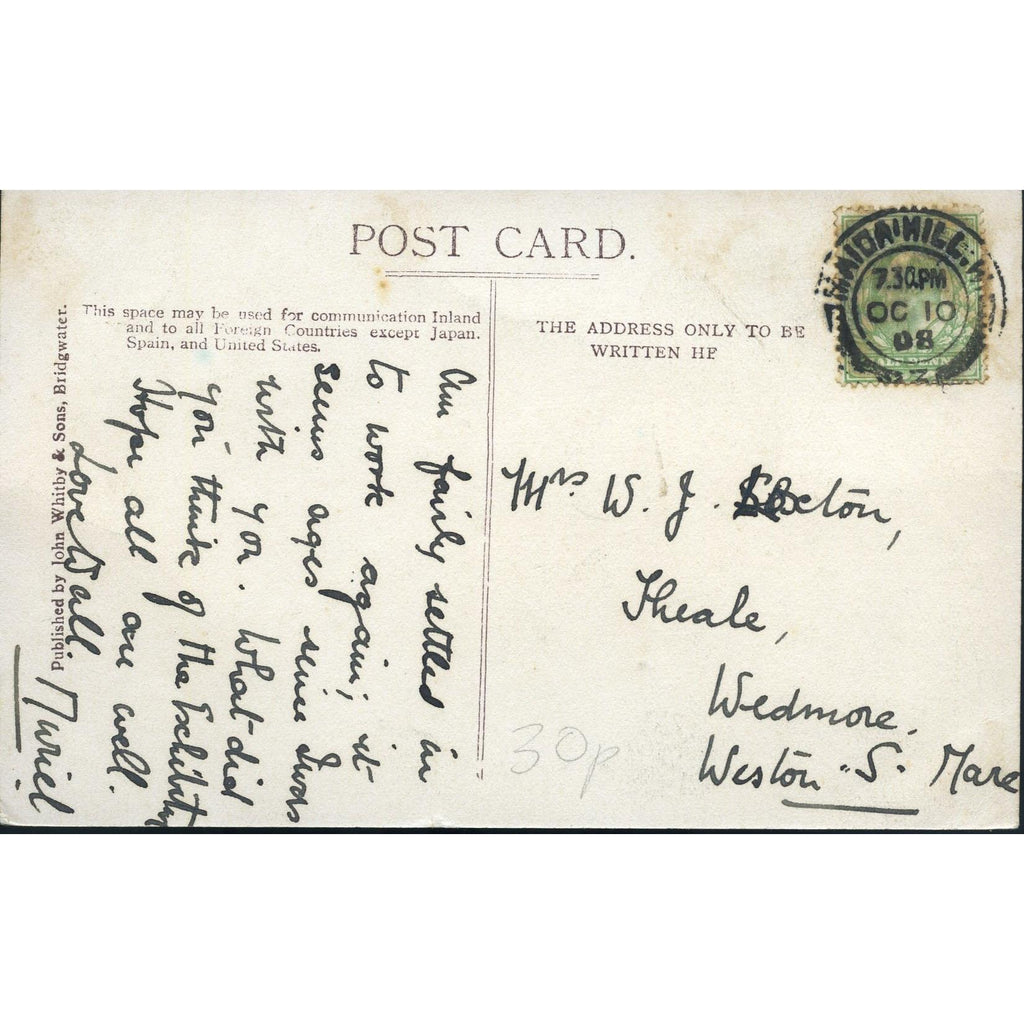 POST CARD.
This space may be used for communication Inland
and to all Foreign Countries except Japan.
Spain, and United States.
THE ADDRESS ONLY TO BE
WRITTEN HE
Published by John Whitby & Sons, Bridgwater.
MAIDA HILL. W
7.30.PM
OC 10
08
Am fairly settled in
to work again; it
seems ages since I was
with you. What did
you think of the Exhibity
Hope all are well.
Love to all.
Muriel
Mrs W. J.
Theale,
Wedmore.
Weston-S-Mare
30p